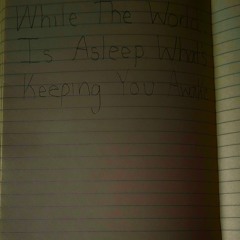 While The World
Is Asleep Whats
Keeping You Awake